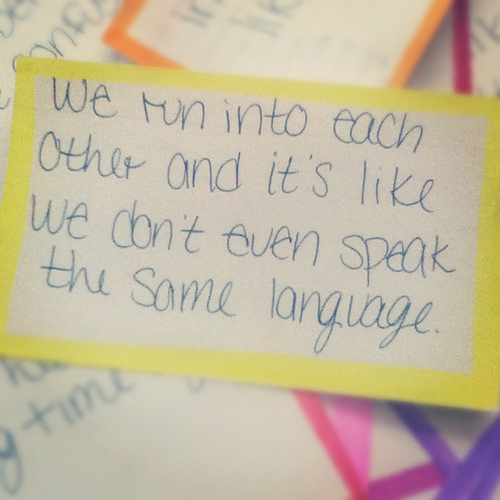 We run into each
other and it's like
we don't even speak
the same language.
time